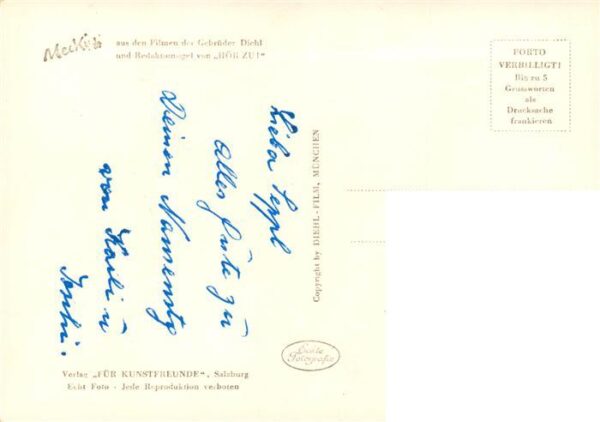 Mecki
aus den Filmen der Gebrüder Diehl
und Redaktionsigel von „HÖR ZU!"
PORTO
VERBILLIGT!
Bis zu 5
Grussworten
als
Drucksache
frankieren
Lieber Seppl
alles Gute zu
Deinem Namenstg
von
Copyright by DIEHL-FILM, MÜNCHEN
Echte
Fotografie
Verlag „FÜR KUNSTFREUNDE", Salzburg
Echt Foto - Jede Reproduktion verboten